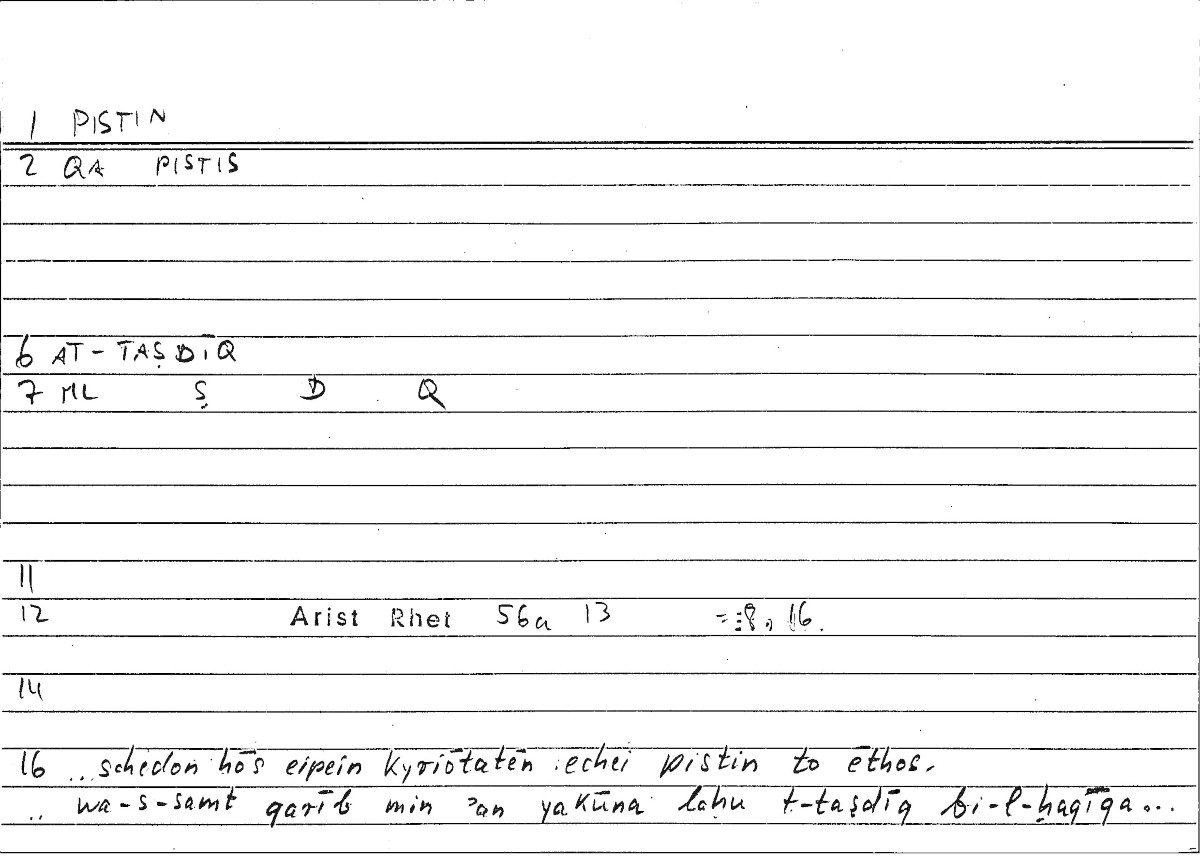 1 PISTIN
2 QA PISTIS
6 AT-TAṢDĪQ
7 ML Ṣ D Q
11
12 Arist Rhet 56a 13 = 8, 16.
14
16 ..schedon hōs eipein kyriōtatēn echei pistin to ēthos.
.. wa-s-samt qarīb min ʾan yakūna lahu t-taṣdīq bi-l-ḥaqīqa...